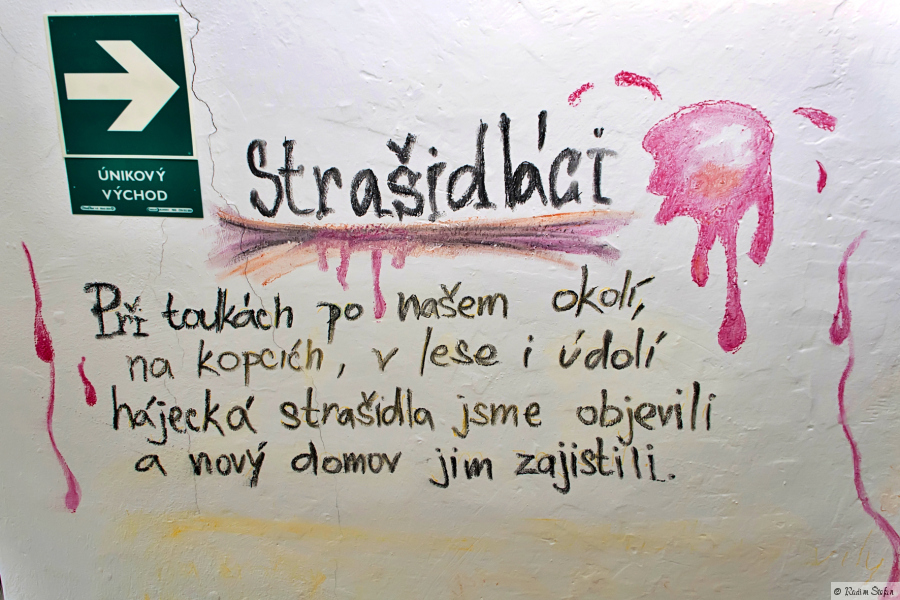 ÚNIKOVÝ
VÝCHOD
Strašidláci
Při toulkách po našem okolí,
na kopcích, v lese i údolí
hájecká strašidla jsme objevili
a nový domov jim zajistili.
© Radim Štefan